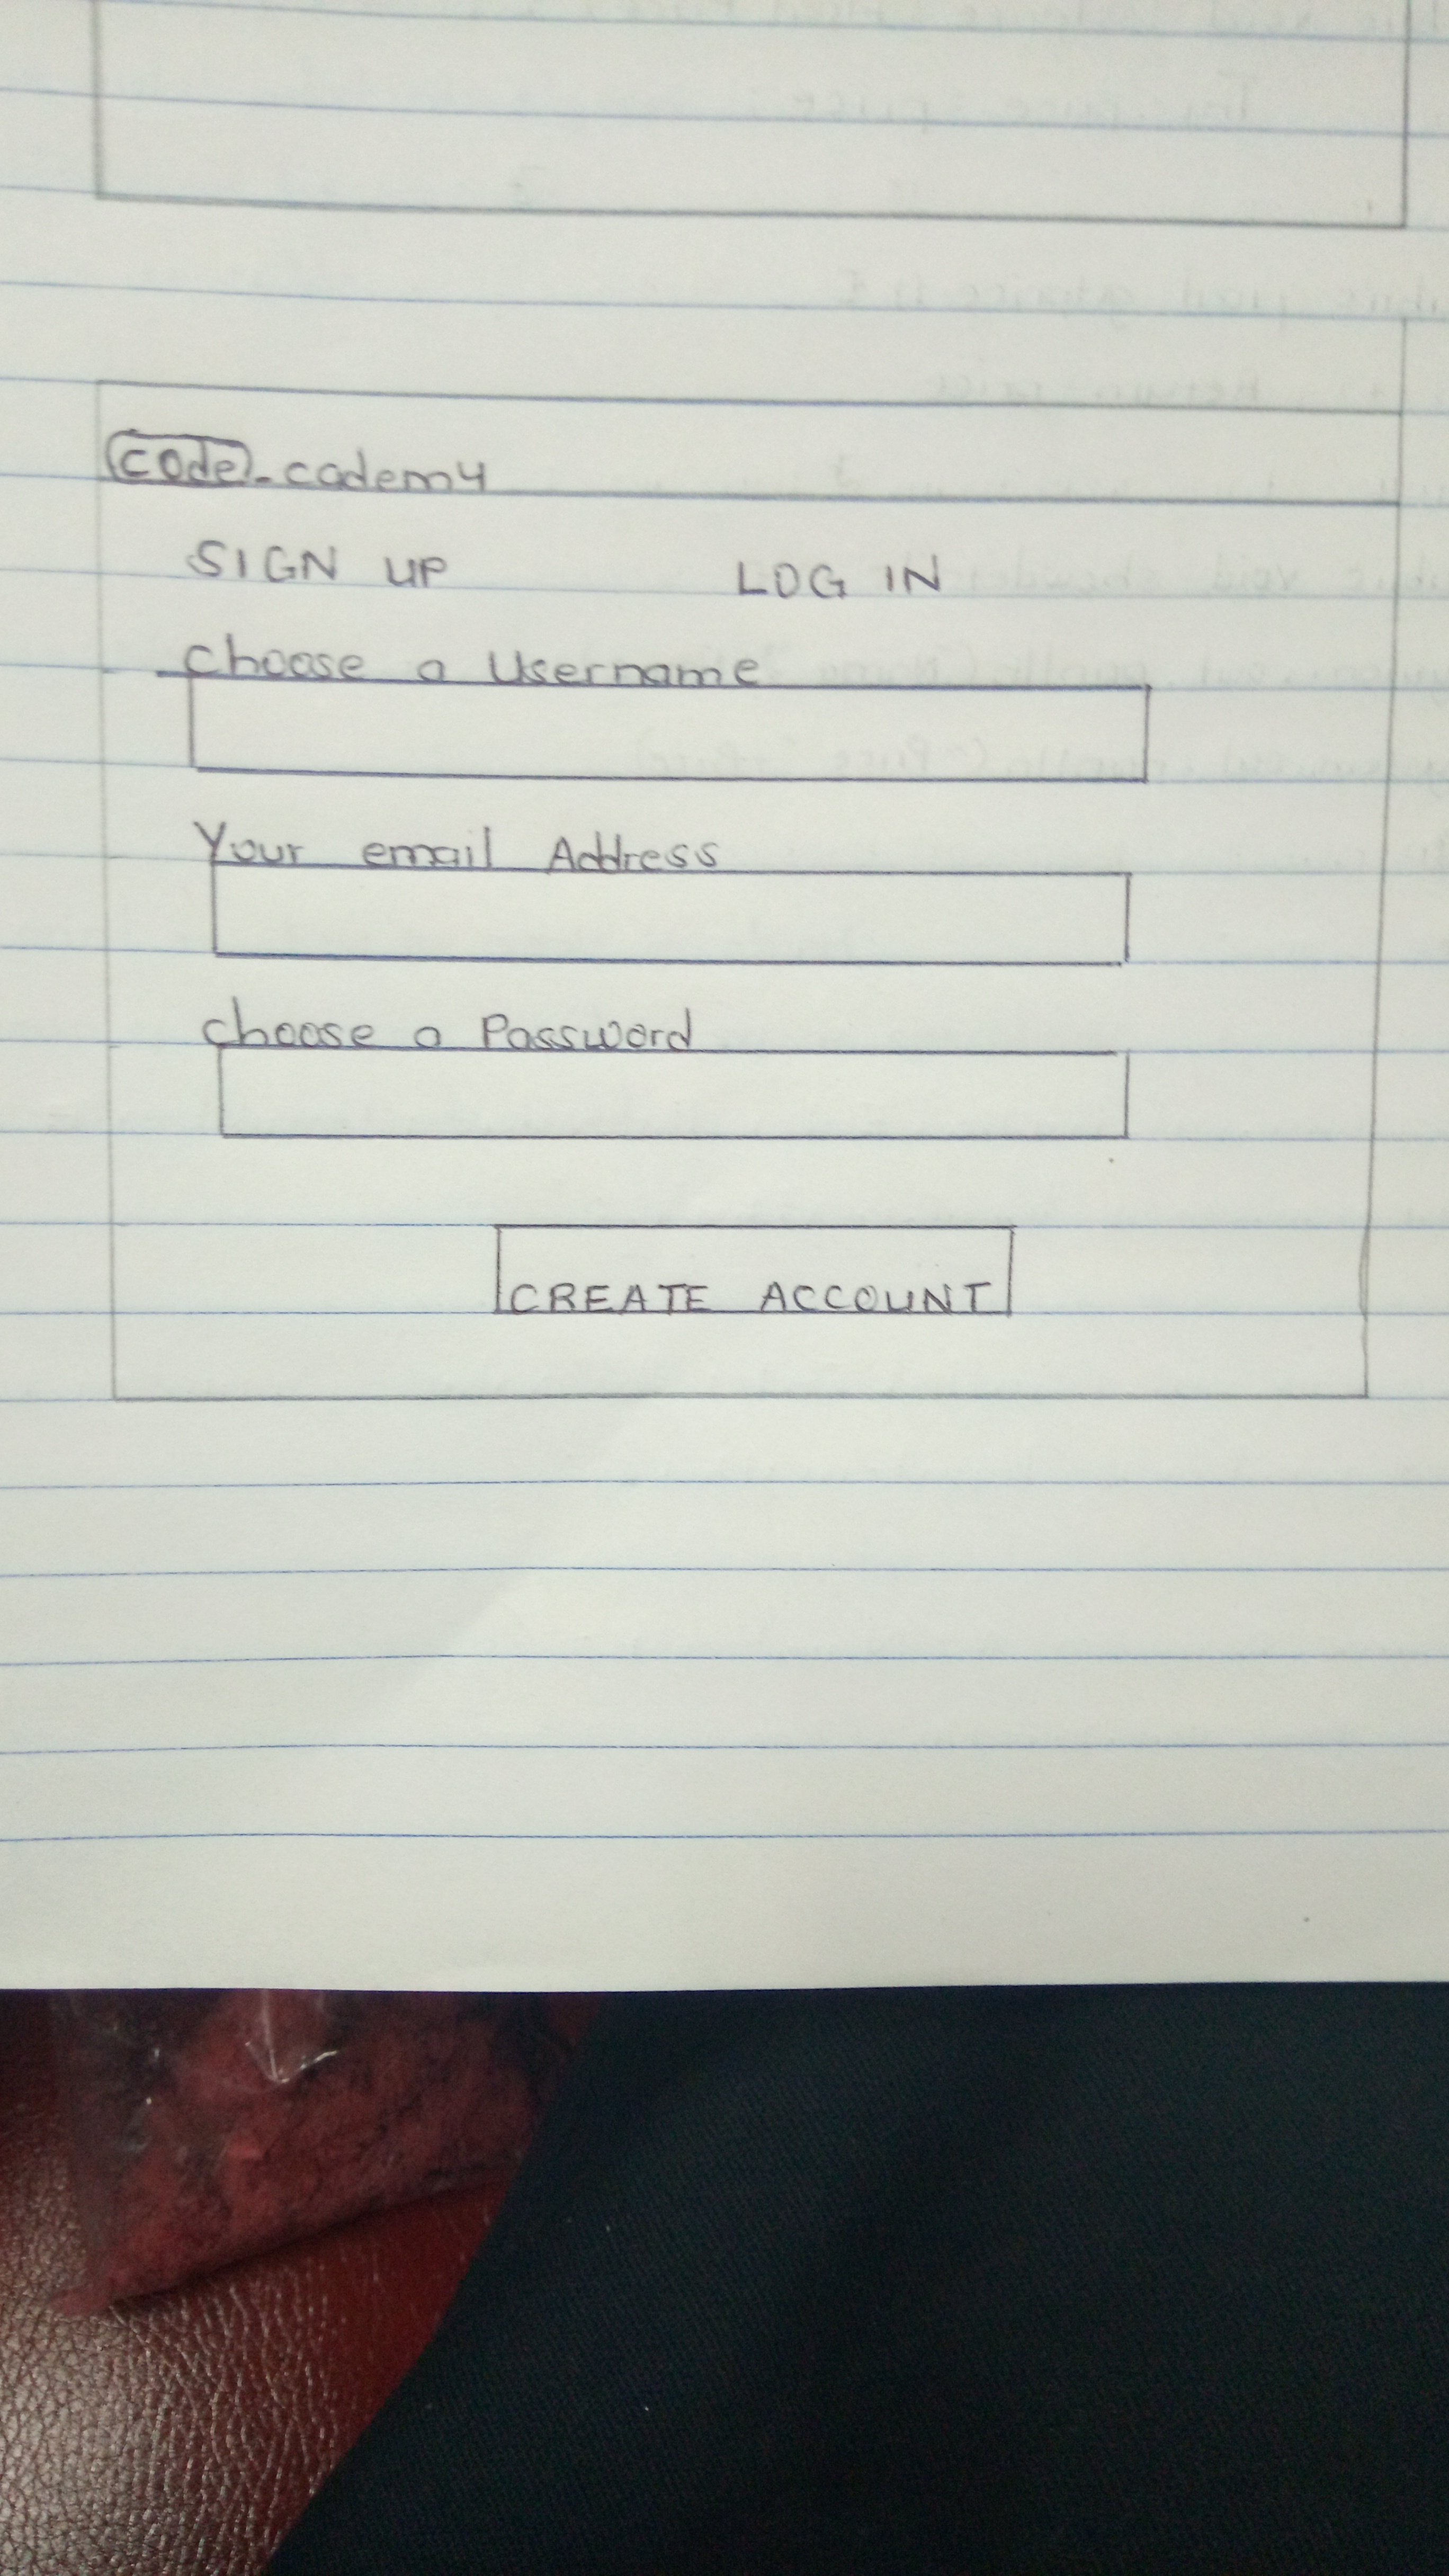 code-cademy
SIGN UP LOG IN
choose a Username
Your email Address
choose a Password
CREATE ACCOUNT